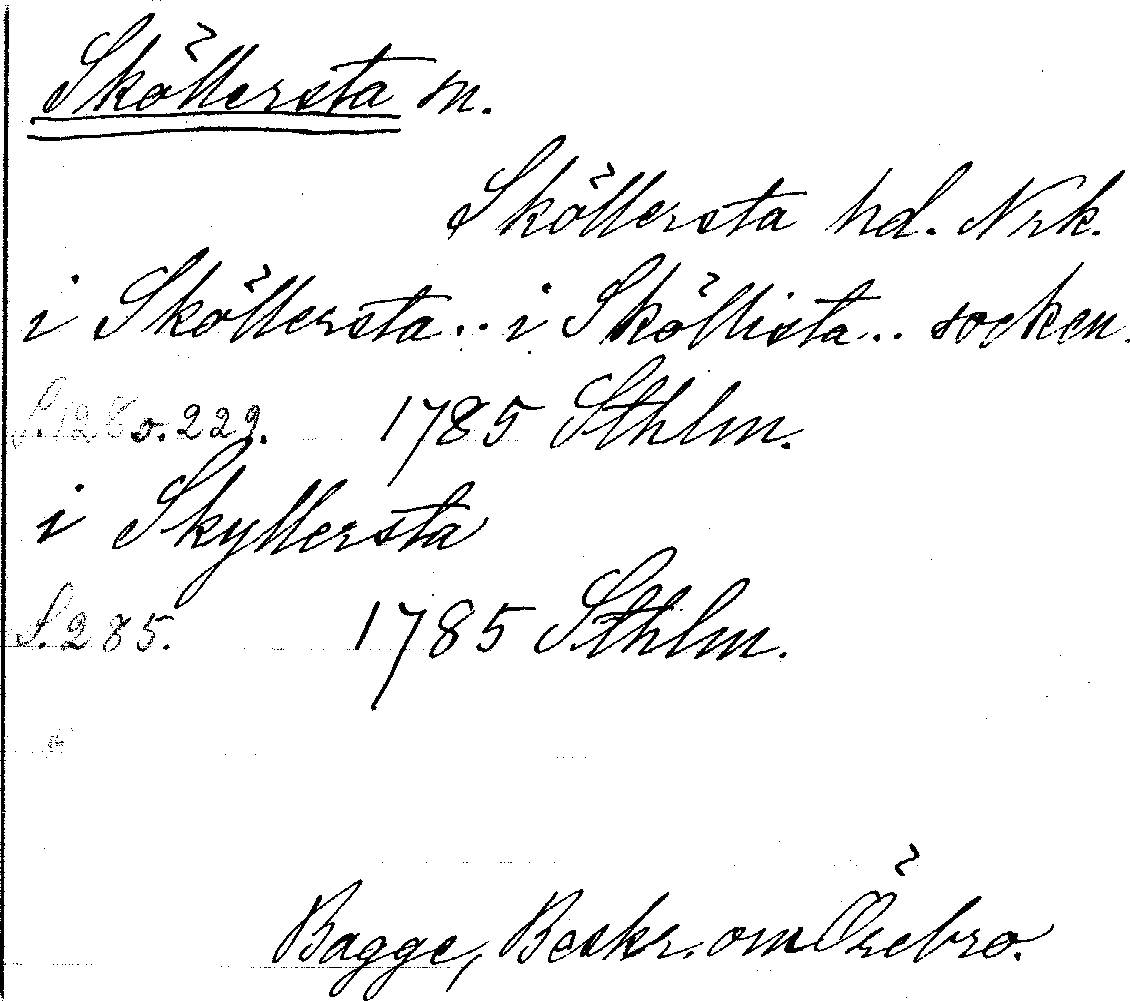 Sköllersta sn.
Sköllersta hd. Nrk.
i Sköllersta.. i Sköllista.. socken.
S. 128 o. 222. 1785 Sthlm.
i Skyllersta
S. 285. 1785 Sthlm.
Bagge, Beskr. om Örebro.